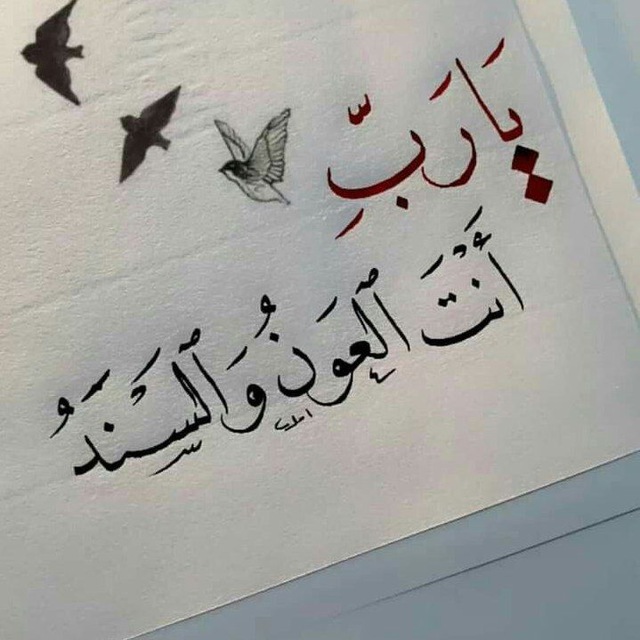 يَا رَبِّ
أَنْتَ ٱلْعَوْنُ وَٱلسَّنَدُ